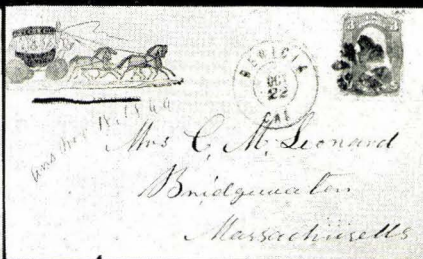 BENICIA
OCT
22
CAL
3 3
Mrs C. M. Leonard
Bridgewater
Massachusetts